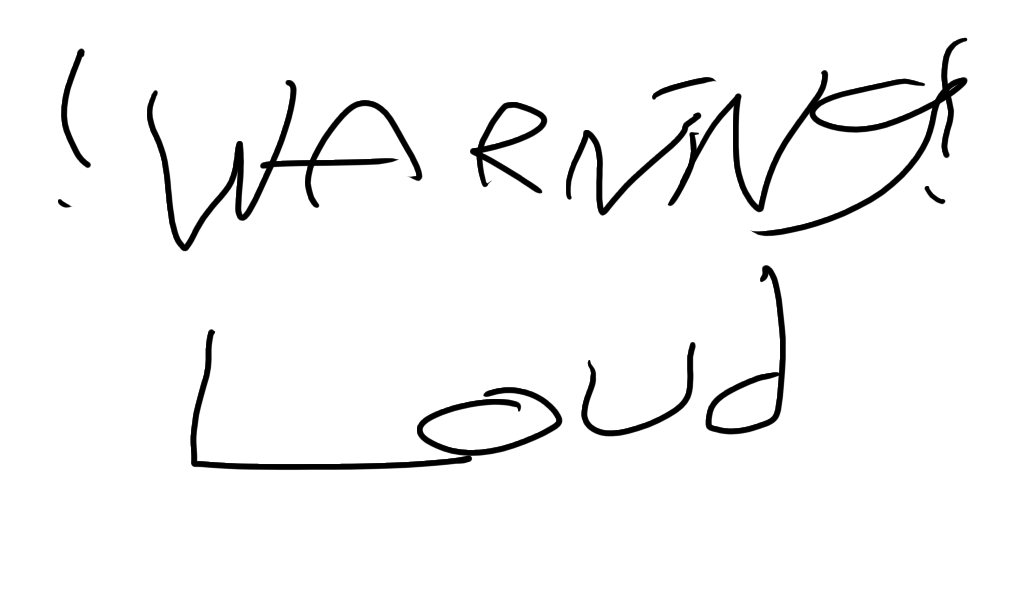 ! WARNING!
Loud